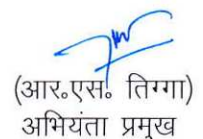 (आर०एस० तिग्गा)
अभियंता प्रमुख